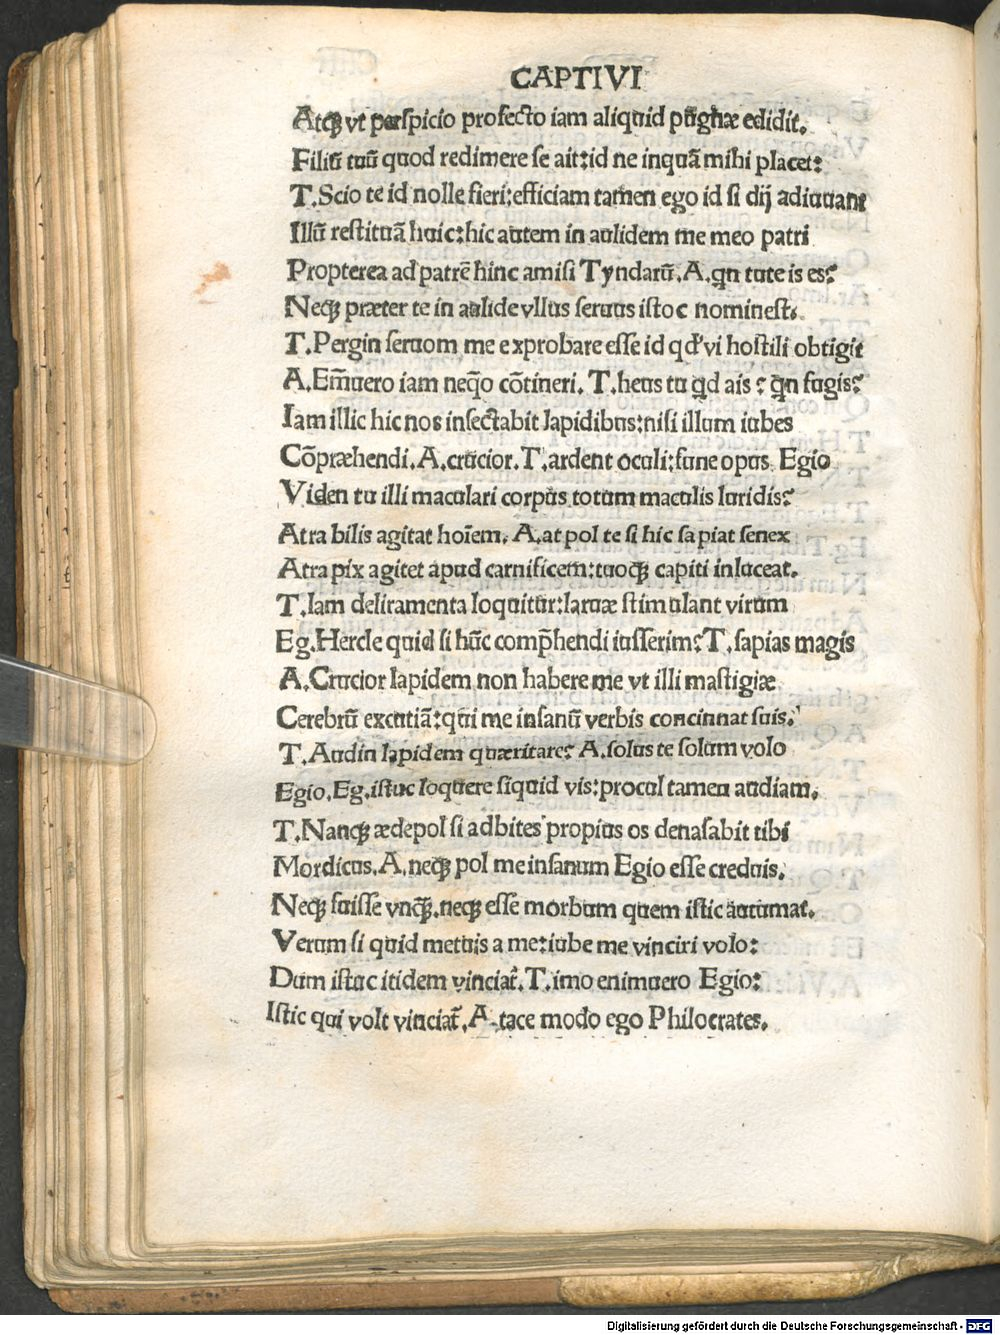 CAPTIVI
Atqꝫ vt perspicio profecto iam aliquid pūgnæ edidit.
Filiū tuū quod redimere se ait:id ne inquā mihi placet:
T.Scio te id nolle fieri:efficiam tamen ego id si dij adiuuant
Illū restituā huic:hic autem in aulidem me meo patri
Propterea ad patrē hinc amisi Tyndarū.A.qn tute is es?
Neqꝫ præter te in aulide vllus seruus istoc nominest.
T.Pergin seruom me exprobare esse id qd' vi hostili obtigit
A.Em̄uero iam neq̄o cōtineri.T.heus tu qd ais? qn fugis?
Iam illic hic nos insectabit lapidibus:nisi illum iubes
Cōpræhendi.A.crucior.T.ardent oculi:fune opus Egio
Viden tu illi maculari corpus totum maculis luridis?
Atra bilis agitat hoīem.A.at pol te si hic sapiat senex
Atra pix agitet apud carnificem:tuoqꝫ capiti inluceat.
T.Iam deliramenta loquitur:laruæ stimulant virum
Eg.Hercle quid si hūc comp̄hendi iusserim?T.sapias magis
A.Crucior lapidem non habere me vt illi mastigiæ
Cerebrū excutiā:qui me insanū verbis concinnat suis.
T.Audin lapidem quæritare? A.solus te solum volo
Egio.Eg.istuc loquere siquid vis:procul tamen audiam.
T.Nanqꝫ ædepol si adbites propius os denasabit tibi
Mordicus.A.neqꝫ pol me insanum Egio esse creduis.
Neqꝫ fuisse vnqꝫ.neqꝫ esse morbum quem istic autumat.
Verum si quid metuis a me:iube me vinciri volo:
Dum istuc itidem vinciat̄.T.imo enimuero Egio:
Istic qui volt vinciat̄.A.tace modo ego Philocrates.
Digitalisierung gefördert durch die Deutsche Forschungsgemeinschaft - DFG